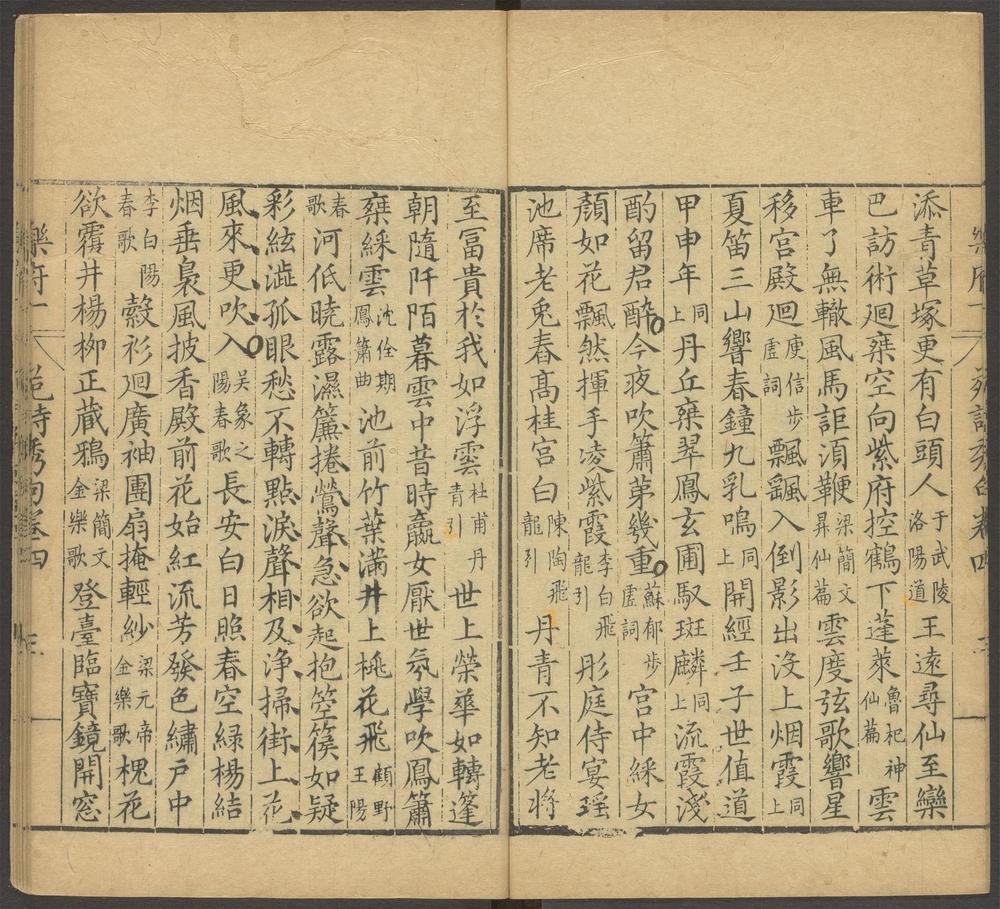 添青草塚更有白頭人于武陵洛陽道王遠尋仙至欒
巴訪術迴桒空向紫府控鶴下蓬萊魯祀神仙萹雲
車了無轍風馬詎湏鞭梁簡文昇仙萹雲度弦歌響星
移宮殿迴庾信步虛詞飄飄入倒影出沒上烟霞同上
夏笛三山響春鐘九乳鳴同上開經壬子世值道
甲申年同上丹丘桒翠鳳玄圃馭斑麟同上流霞淺
酌留君醉今夜吹簫第幾重蘇郁步虛詞宮中綵女
顏如花飄然揮手凌紫霞李白飛龍引彤庭侍宴瑶
池席老兎舂髙桂宮白陳陶飛龍引丹青不知老將
至冨貴於我如浮雲杜甫丹青引世上榮華如轉篷
朝隨阡陌暮雲中昔時嬴女厭世氛學吹鳳簫
桒綵雲沈佺期鳳簫曲池前竹葉滿井上桃花飛顧野王陽
春歌河低曉露濕簾捲鶯聲急欲起抱箜篌如疑
彩絃澁孤眼愁不轉點淚聲相及浄掃街上花
風來更吹入吴象之陽春歌長安白日照春空緑楊結
烟垂裊風披香殿前花始紅流芳發色繡戸中
李白陽春歌縠衫迴廣袖團扇掩輕紗梁元帝金樂歌槐花
欲覆井楊栁正藏鴉梁簡文金樂歌登臺臨寶鏡開窓
樂府一